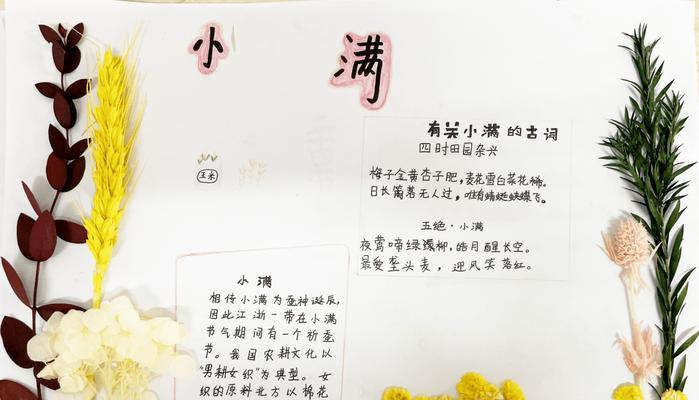 小满
有关小满的古词
四时田园杂兴
梅子金黄杏子肥，麦花雪白菜花稀。
日长篱落无人过，惟有蜻蜓蛱蝶飞。
五绝·小满
夜莺啼绿柳，皓月醒长空。
最爱垄头麦，迎风笑落红。
玉米
小满
相传小满为蚕神诞辰，
因此江浙一带在小满
节气期间有一个祈蚕
节。我国农耕文化以
“男耕女织”为典型。女
织的原料北方以棉花